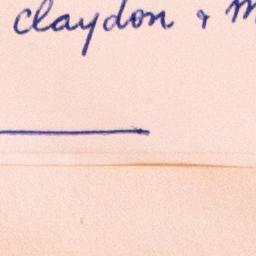 claydon & m